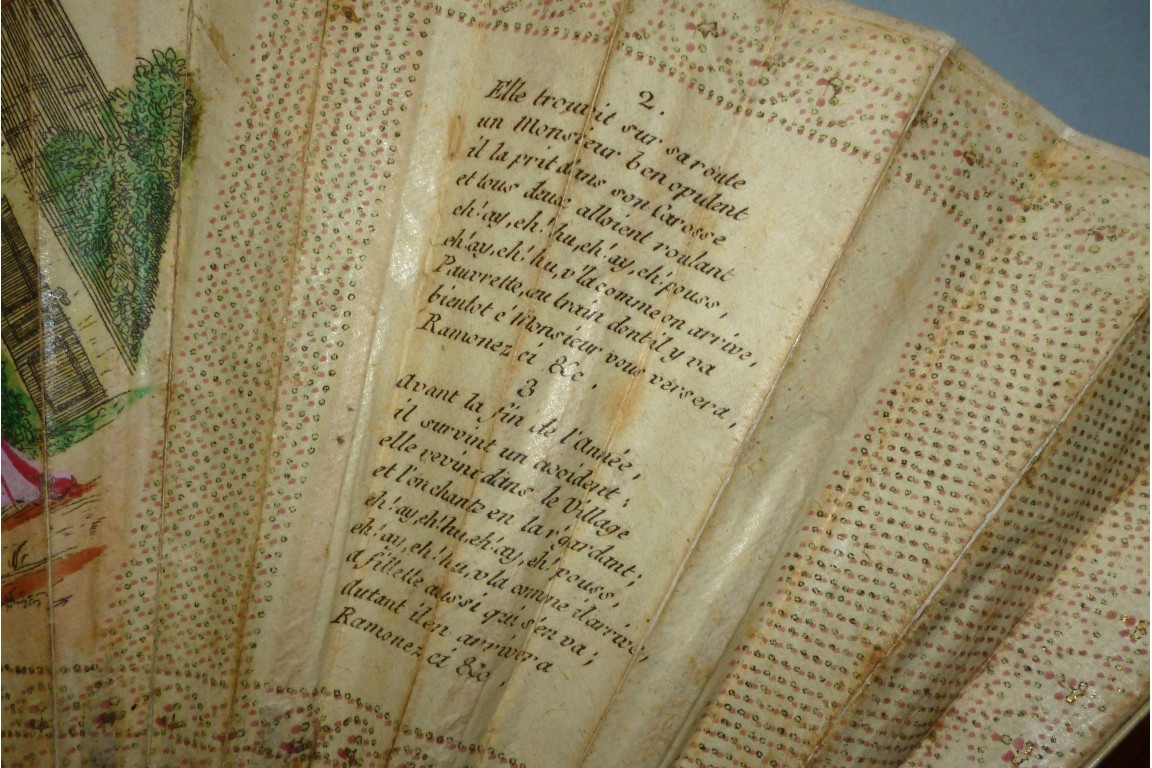 2.
Elle trouvit sur sa route
un Monsieur ben opulent
il la prit dans son Carosse
et tous deux alloient roulant
eh! ay, eh! hu, eh! ay, eh! pouss,
eh! ay, eh! hu, v'la comme on arrive,
Pauvrette, au train dont il y va
bientot c' Monsieur vous versera,
Ramonez ci &c.
3
Avant la fin de l'Année,
il survint un accident;
elle revint dans le Village
et l'on chante en la r'gardant;
eh! ay, eh! hu, eh! ay, eh! pouss,
eh! ay, eh! hu, v'la comme il arrive,
a fillette aussi qui s'en va;
autant il en arrivera
Ramonez ci &c.